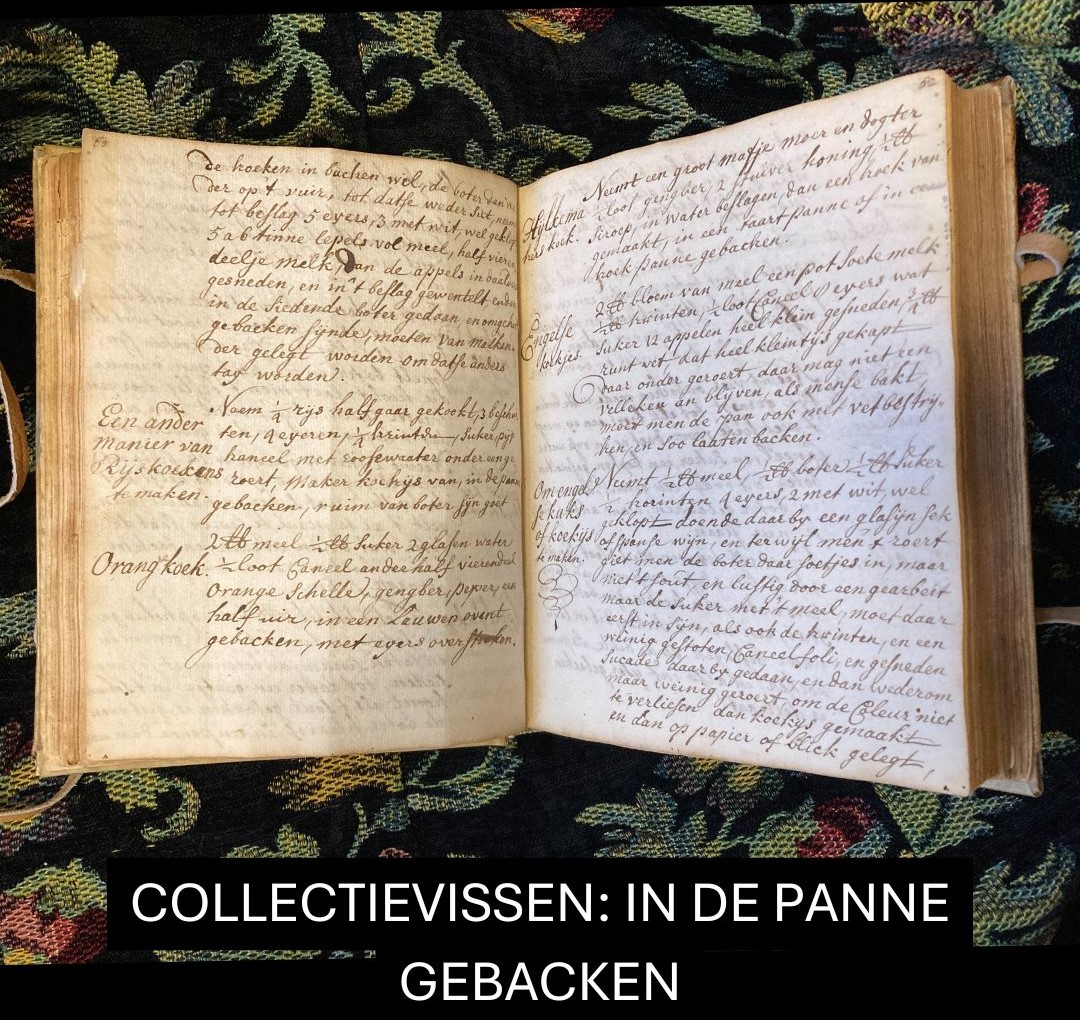 de koeken in backen wel, de boter dan
der op t vuir, tot datse weder siet,
tot beslag 5 eyers, 3 met wit, wel geklopt
5 a 6 tinne lepels vol meel, half vieren
deelje melk, dan de appels in
gesneden, en in't beslag gewentelt, en
in de siedende boter gedaan, en
gebacken synde, moeten van malkan
der gelegt worden om datse anders
tay worden.
Een ander
manier van
Rijskoekens
te maken.
Neem 1/4 rijs half gaar gekookt, 3
ten, 4 eyeren, 1/4 krinten, suker,
kaneel met roosewaater onder een ge
roert, maker koekijs van, in de pan
gebacken, ruim van boter sijn goet
Orangkoek.
2 ℔ meel 1/2 ℔ suker 2 glasen water
1/2 loot Caneel ander half vierendeel
Orange Schelle, gengber, peper, een
half uir, in een Lauwen ovent
gebacken, met eyers overstreken.
62
Hylkema
koek.
Neemt een groot matje moer en dogter
loot gengber, 2 stuiver honing, 1/2 ℔
Siroop, in water beslagen, dan een koek van
gemaakt, in een taart panne of in een
koek panne gebacken.
Engelse
koekjes.
2 ℔ bloem van meel een pot soete melk
1/2 ℔ krinten, 1/2 loot Caneel 8 eyers wat
suker 12 appelen heel klein gesneden, 3/4 ℔
runt vet, dat heel kleintys gekapt
daar onder geroert, daar mag niet een
velleken an blyven, als mense bakt,
moet men de pan ook met vet bestry
ken, en soo laaten backen.
Om engel
se kuks
of koekijs
te maken.
Neemt 1/2 ℔ meel, 1/2 ℔ boter 1/2 ℔ suker
1/2 korinten 4 eyers, 2 met wit, wel
geklopt doende daar by een glasijn sek
of spanse wijn, en terwyl men t roert
giet men de boter daar soetjes in, maar
niet t sout, en lustig door een gearbeit
maar de suker met t meel, moet daar
eerst in sijn, als ook de krinten, en een
weinig gestoten Caneel foli, en gesneden
sucade daar by gedaan, en dan wederom
maar weinig geroert, om de Coleur niet
te verliesen dan koekys gemaakt
en dan op papier of blick gelegt,
COLLECTIEVISSEN: IN DE PANNE
GEBACKEN